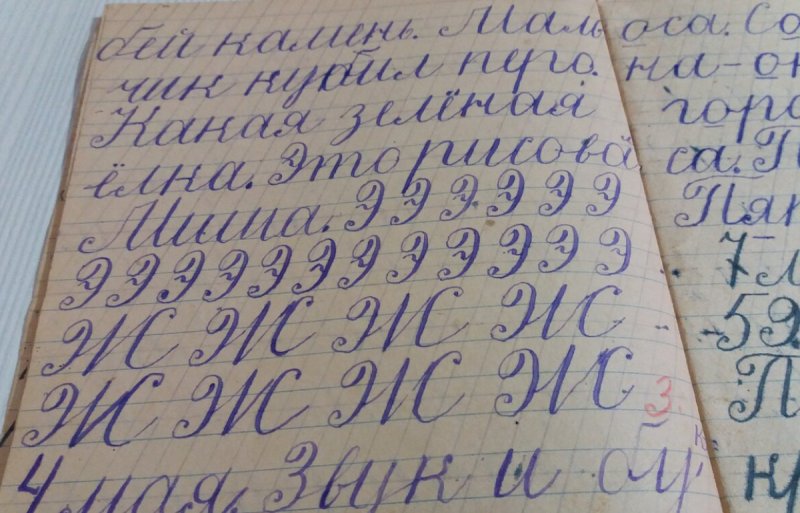 бей камень. Маль
чик кубил пуго.
Какая зелёная
ёлка. Это рисова
Миша. Э Э Э Э Э Э
Э Э Э Э Э Э Э Э Э Э Э Э
Ж Ж Ж Ж
Ж Ж Ж Ж 3
4 мая. Звук и бук
оса. Со
на-ок
горо
са. П
Пян
7 л
-59.
П
кр